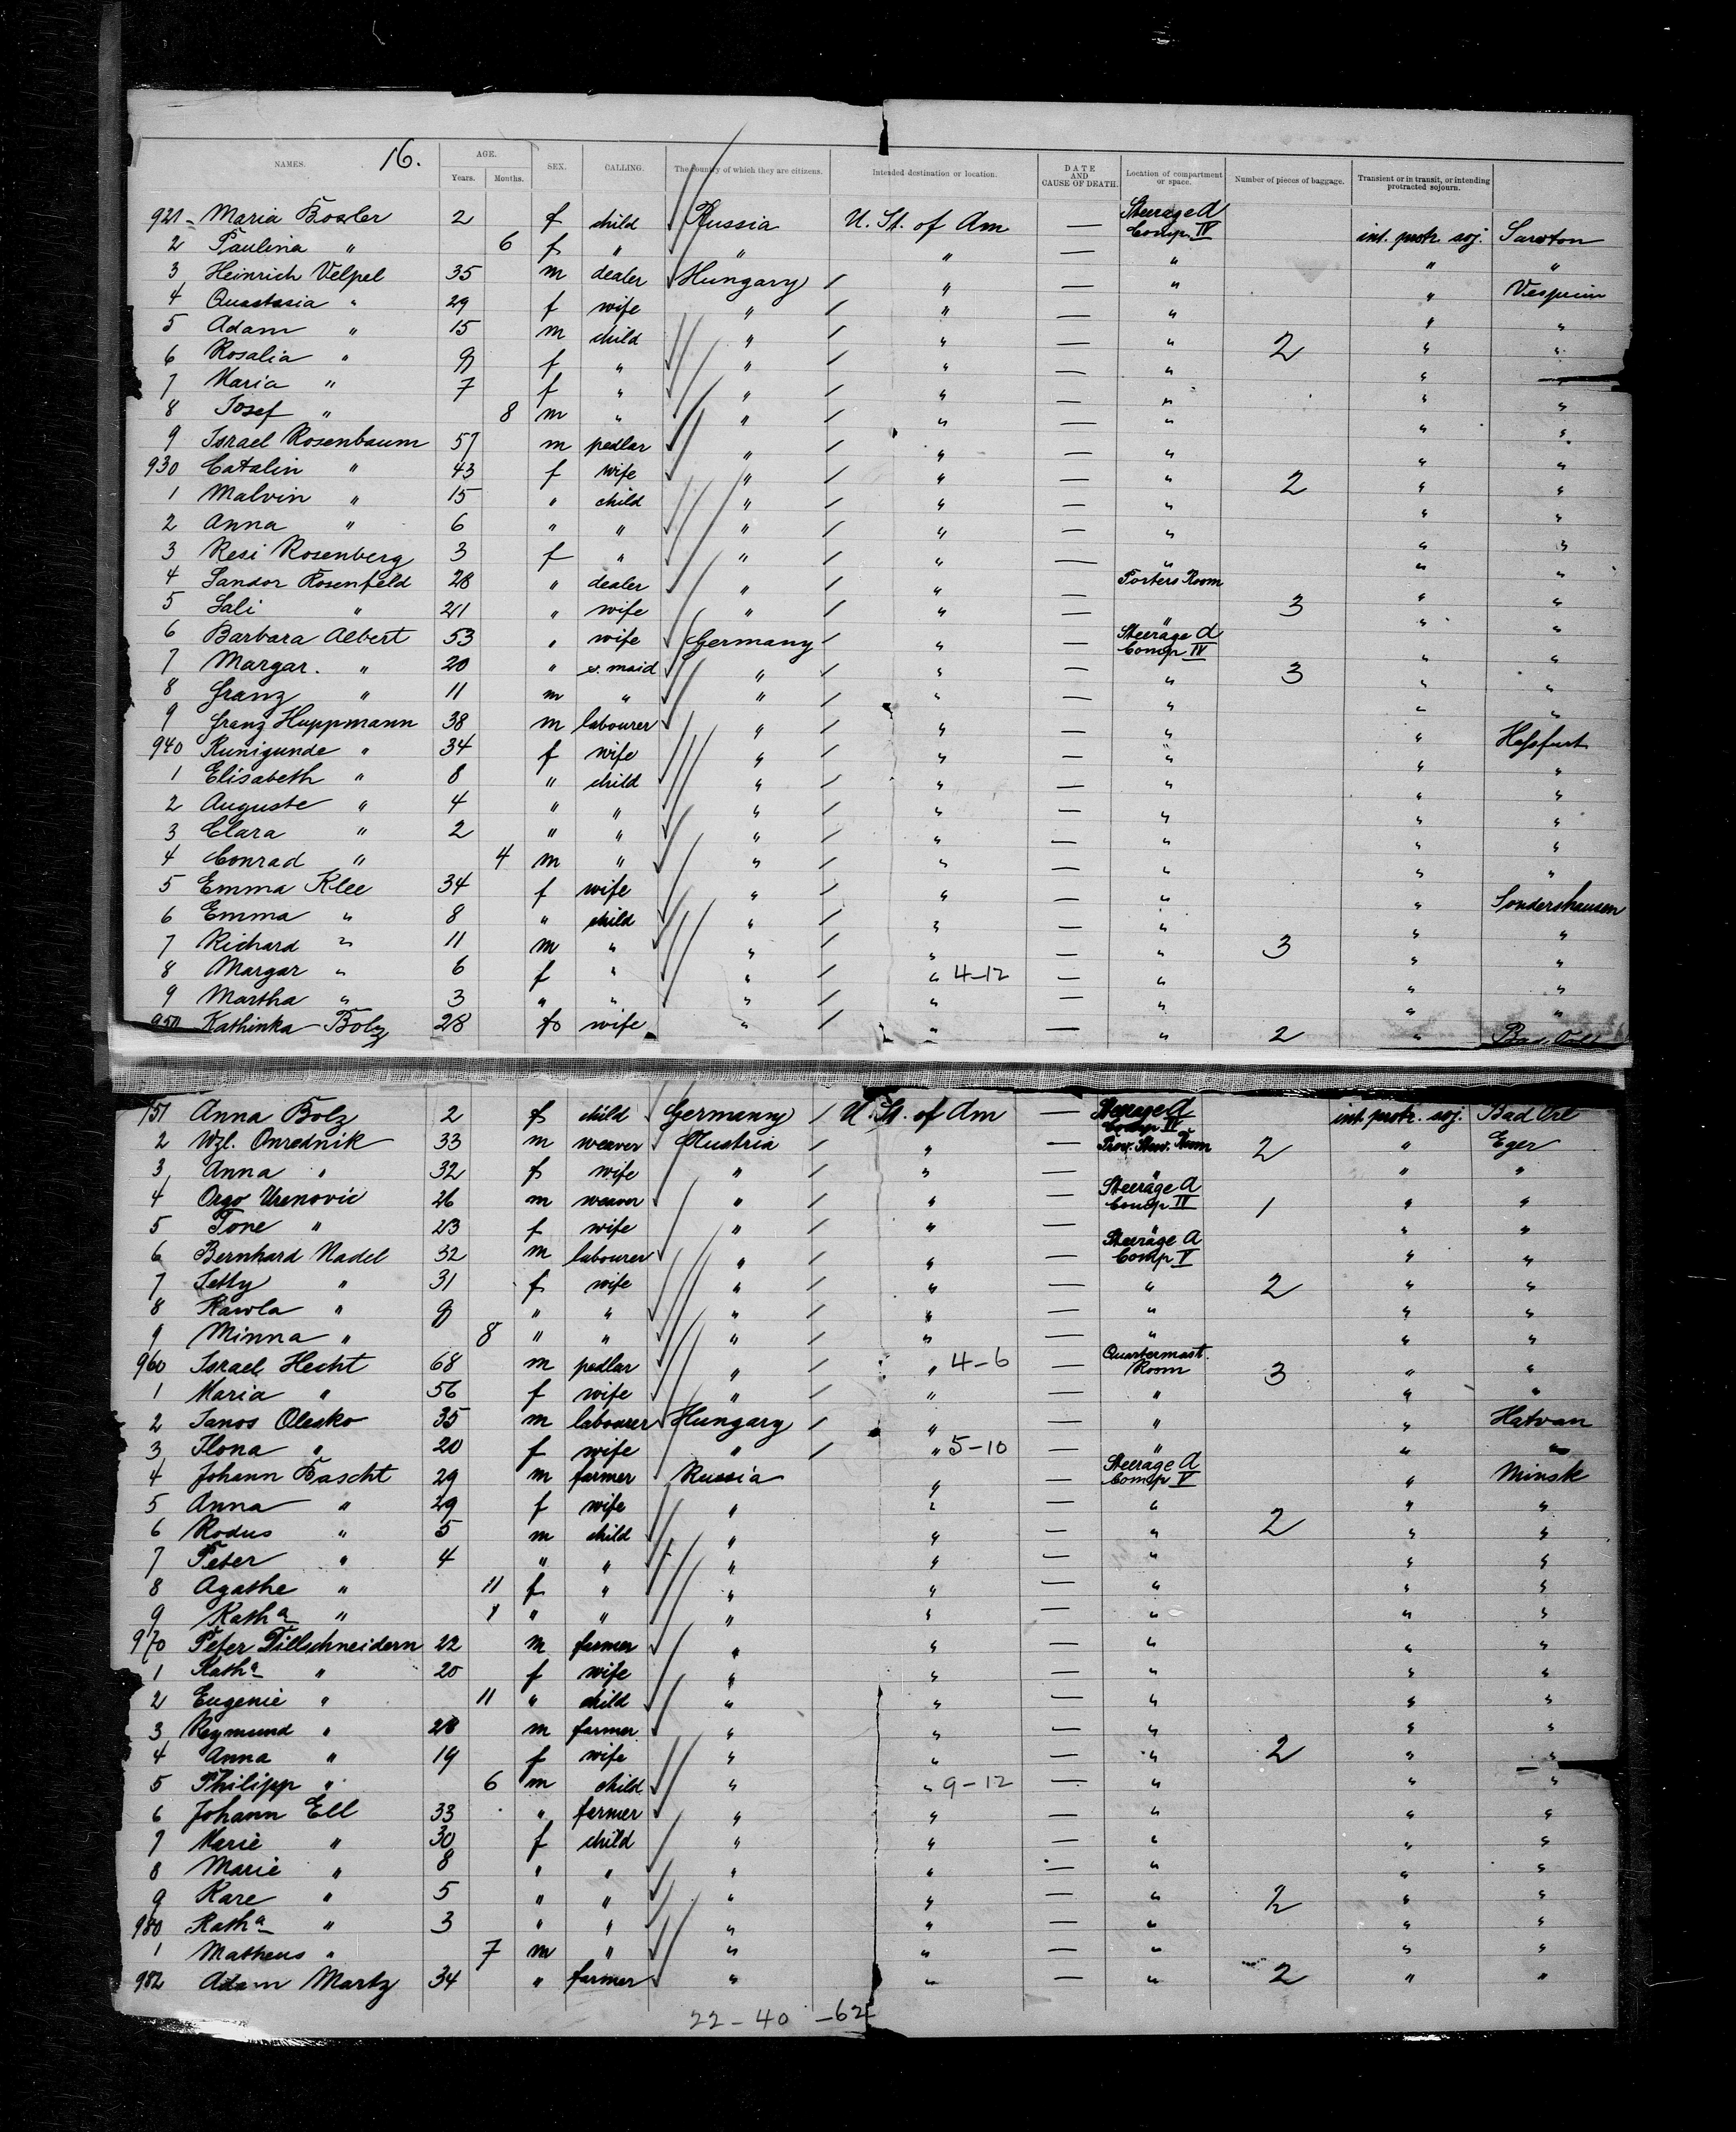 16.
NAMES. AGE. Years. Months. SEX. CALLING. The country of which they are citizens. Intended destination or location. DATE AND CAUSE OF DEATH. Location of compartment or space. Number of pieces of baggage. Transient or in transit, or intending protracted sojourn.
921 Maria Bossler 2 f child Russia U. St. of Am — Steerage A Comp IV int. protr. soj.
2 Paulina " 6 f " " " — " " "
3 Heinrich Velpel 35 m dealer Hungary / " — " " Vesprim
4 " 29 f wife " / " — " " "
5 Adam " 15 m child " / " — " 2 " "
6 Rosalia " 9 f " " / " — " " "
7 Maria " 7 f " " / " — " " "
8 Josef " 8 m " " / " — " " "
9 Israel Rosenbaum 57 m pedlar " / " — " " "
930 Catalin " 43 f wife " / " — " 2 " "
1 Malvin " 15 " child " / " — " " "
2 Anna " 6 " " " / " — " " "
3 Resi Rosenberg 3 f " " / " — " " "
4 Sandor Rosenfeld 28 " dealer " / " — Porters Room " "
5 Sali " 21 " wife " / " — " 3 " "
6 Barbara Albert 53 " wife Germany / " — Steerage A Comp IV " "
7 Margar. " 20 " s. maid " / " — " 3 " "
8 Franz " 11 m " " / " — " " "
9 Franz Huppmann 38 m labourer " / " — " " Hassfurt
940 Kunigunde " 34 f wife " / " — " " "
1 Elisabeth " 8 " child " / " — " " "
2 Auguste " 4 " " " / " — " " "
3 Clara " 2 " " " / " — " " "
4 Conrad " 4 m " " / " — " " "
5 Emma Klee 34 f wife " / " — " " Sondershausen
6 Emma " 8 " child " / " — " " "
7 Richard " 11 m " " / " — " 3 " "
8 Margar " 6 f " " / " 4-12 — " " "
9 Martha " 3 " " " / " — " " "
950 Kathinka Bolz 28 f wife " / " — " 2 "
951 Anna Bolz 2 f child Germany / U. St. of Am — Steerage A Comp IV int. protr. soj. Bad Orb
2 Wzl. Onrednik 33 m weaver Austria / " — Prov. Stew. Room 2 " Eger
3 Anna " 32 f wife " / " — " " "
4 Orgo Urenovic 26 m weaver " / " — Steerage A Comp IV 1 " "
5 Tone " 23 f wife " / " — " " "
6 Bernhard Nadel 32 m labourer " / " — Steerage A Comp V " "
7 Jetty " 31 f wife " / " — " 2 " "
8 Kawla " 9 " " " / " — " " "
9 Minna " 8 " " " / " — " " "
960 Israel Hecht 68 m pedlar " / " 4-6 — Quartermast. Room 3 " "
1 Maria " 56 f wife " / " — " " "
2 Janos Olesko 35 m labourer Hungary / " — " " Hatvan
3 Ilona " 20 f wife " / " 5-10 — " " "
4 Johann Bascht 29 m farmer Russia " — Steerage A Comp V " Minsk
5 Anna " 29 f wife " " — " " "
6 Rodus " 5 m child " " — " 2 " "
7 Peter " 4 " " " " — " " "
8 Agathe " 11 f " " " — " " "
9 Katha " 1 " " " " — " " "
970 Peter Tillschneidern 22 m farmer " " — " " "
1 Katha " 20 f wife " " — " " "
2 Eugenie " 11 " child " " — " " "
3 Reymund " 28 m farmer " " — " " "
4 Anna " 19 f wife " " — " 2 " "
5 Philipp " 6 m child " " 9-12 — " " "
6 Johann Ell 33 " farmer " " — " " "
7 Marie " 30 f child " " — " " "
8 Marie " 8 " " " " — " " "
9 Kare " 5 " " " " — " 2 " "
980 Katha " 3 " " " " — " " "
1 Matheus " 7 m " " " — " " "
982 Adam Martz 34 " farmer " " — " 2 " "
22-40-62